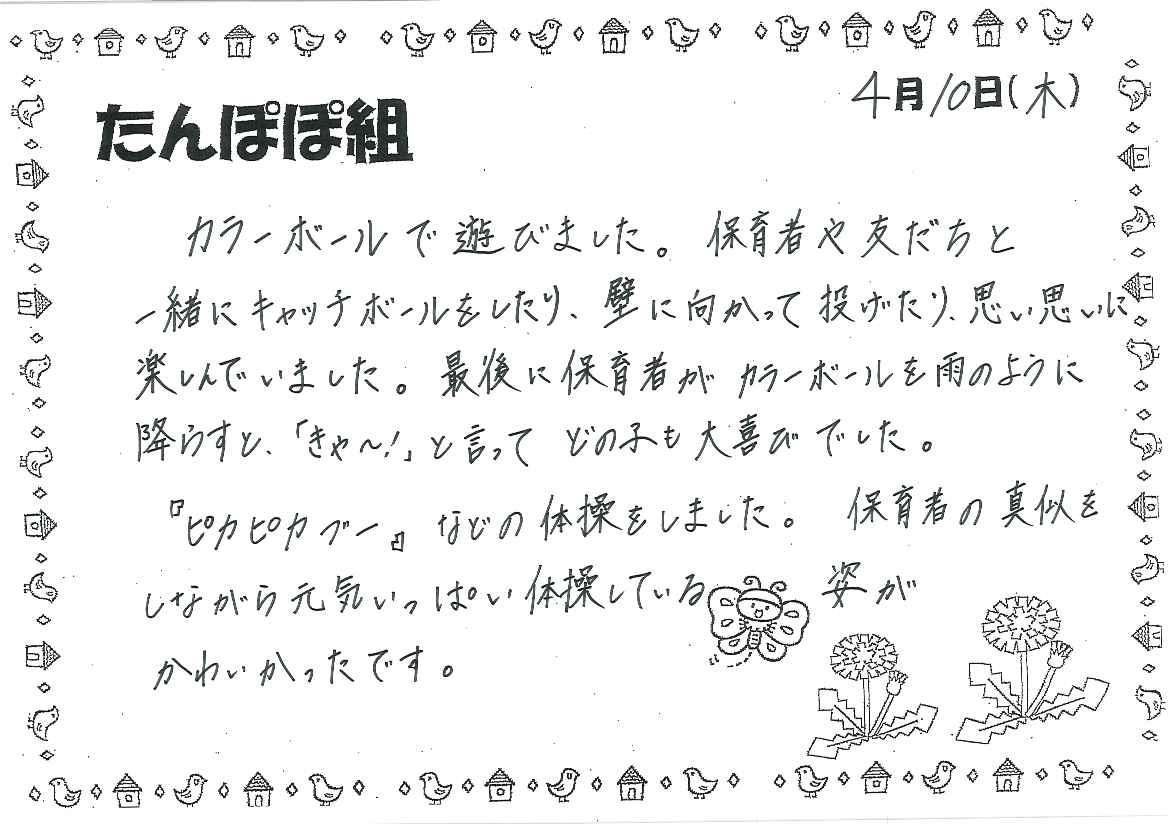 4月10日(木)
たんぽぽ組
カラーボールで遊びました。保育者や友だちと
一緒にキャッチボールをしたり、壁に向かって投げたり、思い思いに
楽しんでいました。最後に保育者がカラーボールを雨のように
降らすと、「きゃ〜!」と言ってどの子も大喜びでした。
『ピカピカブー』などの体操をしました。保育者の真似を
しながら元気いっぱい体操している姿が
かわいかったです。